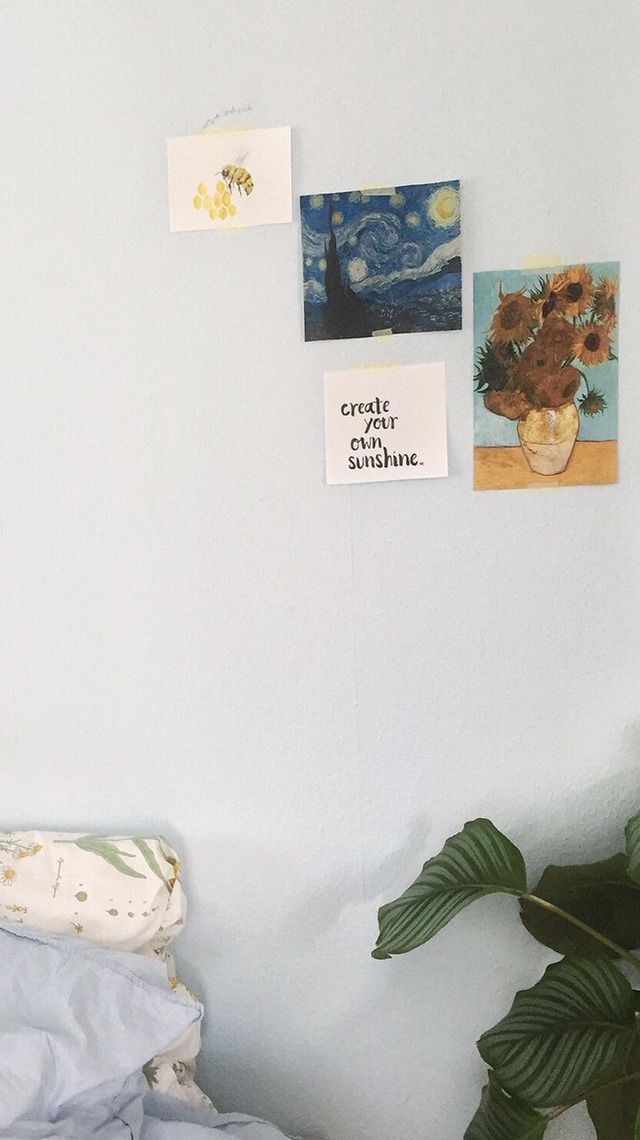 create
your
own
sunshine.